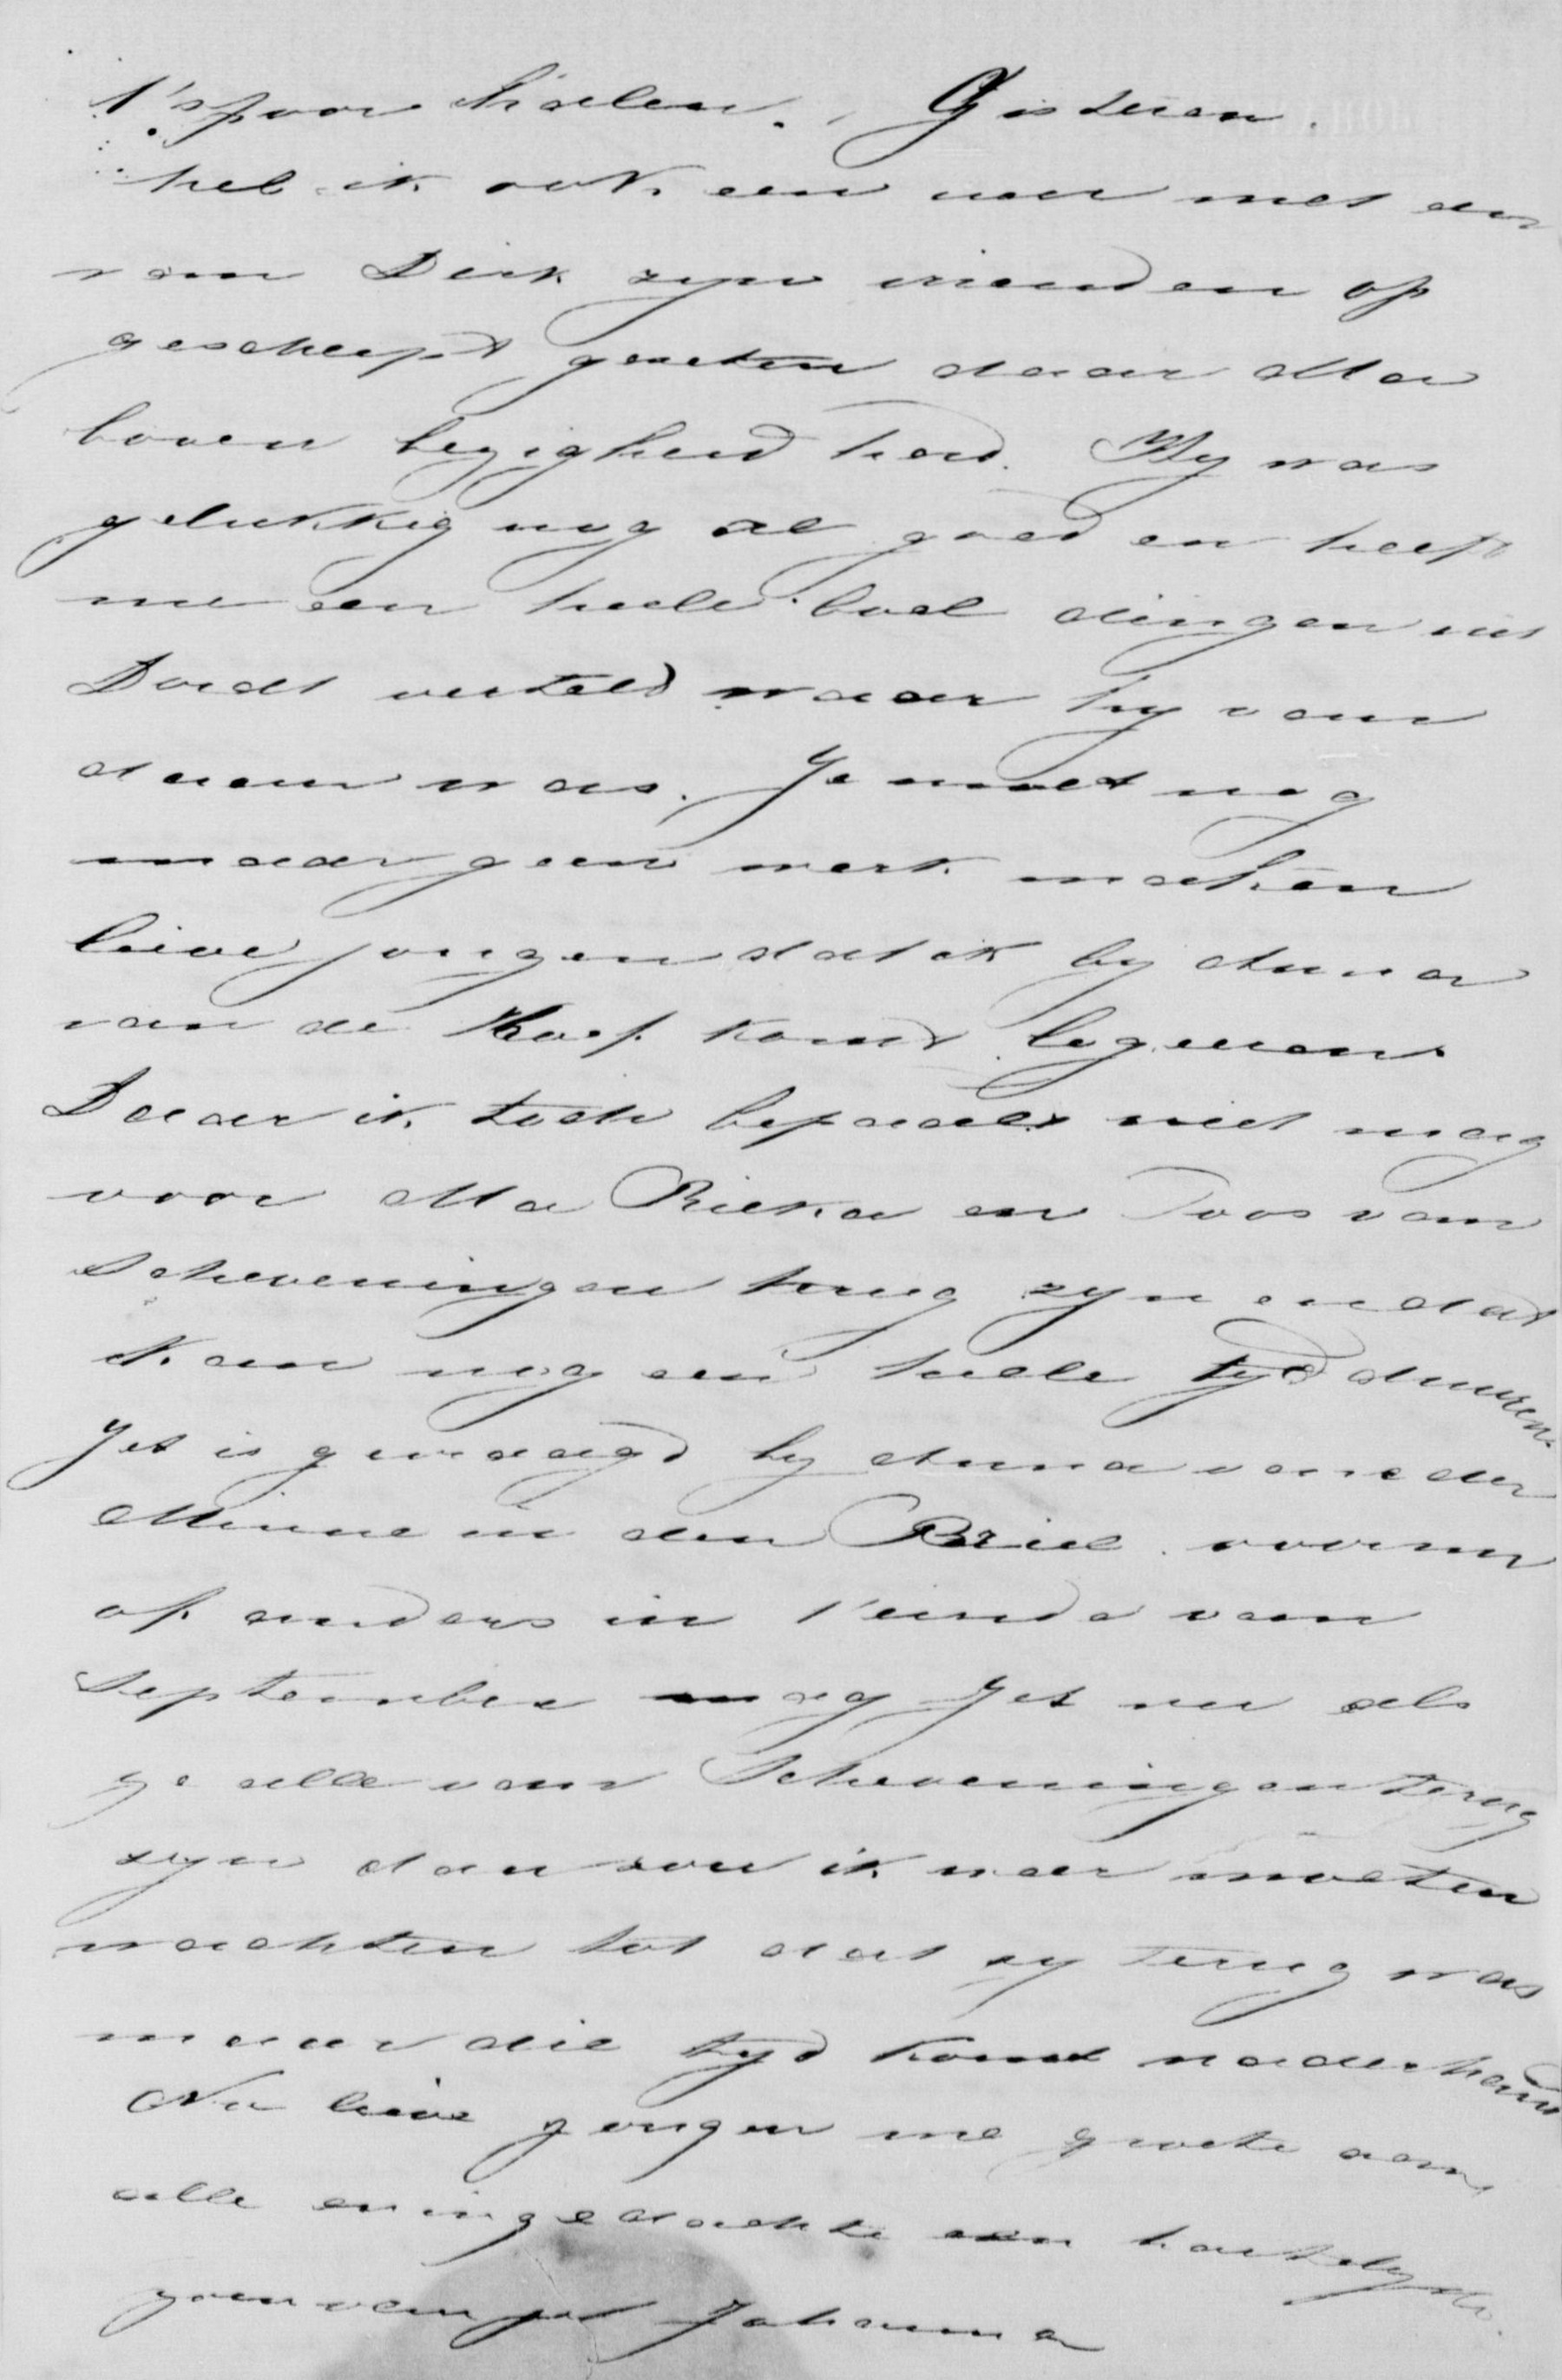 t'spoor halen. Gisteren
heb ik ook een uur met een
van Dirk zyn vrienden op
gescheept gezeten daar Ma
boven bezigheid had. Hy was
gelukkig nog al goed en heeft
me een heele boel dingen uit
Dordt verteld waar hy van
daan was. Je moet nog
maar geen werk maken
lieve jongen dat ik by Anna
van de Kaap komt logeeren
Daar ik toch bepaald niet mag
voor Ma Rieka en Toos van
Scheveningen terug zyn en dat
kan nog een heele tyd duuren.
Jet is gevraagd by Anna van der
Minne in den Briel voor nu
of anders in t'einde van
September mag Jet nu als
ge alle van Scheveningen terug
zyn dan zou ik weer moeten
wachten tot dat zy terug was
maar die tyd komt naderhand
Nu lieve jongen me groete aan
alle en in gedachte een hartelyke
zoen van je Johanna